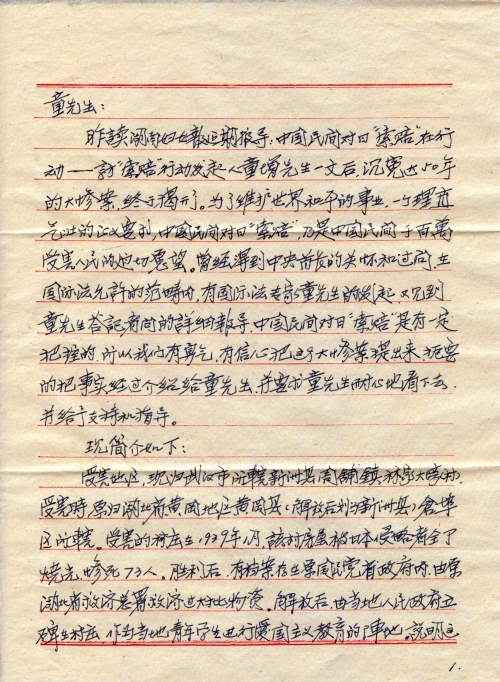 童先生：
昨读湖南妇女报近期报导：中国民间对日“索赔”在行
动——访“索赔”行动发起人童增先生一文后，沉冤达50年
的大惨案，终于揭开了。为了维护世界和平的事业，一个理直
气壮的正义要求，中国民间对日“索赔”，乃是中国民间千百萬
受害人民的迫切愿望。曾经得到中央首长的关怀和过问，在
国际法允許的范畴内，有国际法专家童先生的发起，又见到
童先生答記者问的詳细報导，中国民间对日“索赔”是有一定
把握的，所以我们有勇气，有信心把这个大惨案提出来，扼要
的把事实经过介绍给童先生，并要求童先生耐心地看下去，
并给予支持和指导。
现简介如下：
受害地区，现归武汉市所轄新洲县周舖镇林家大塆村，
受害時，原归湖北省黄冈地区黄冈县（解放后划为新洲县）倉埠
区所轄。受害的村庄在1939年1月該村房屋被日本侵略者全了
烧光，惨死73人。胜利后，有档案在在原国民党省政府内，由原
湖北省救济总署救济过大批物资。解放后，由当地人民政府立
碑在村庄，作为当地青年学生进行爱国主义教育的阵地。説明这
1.